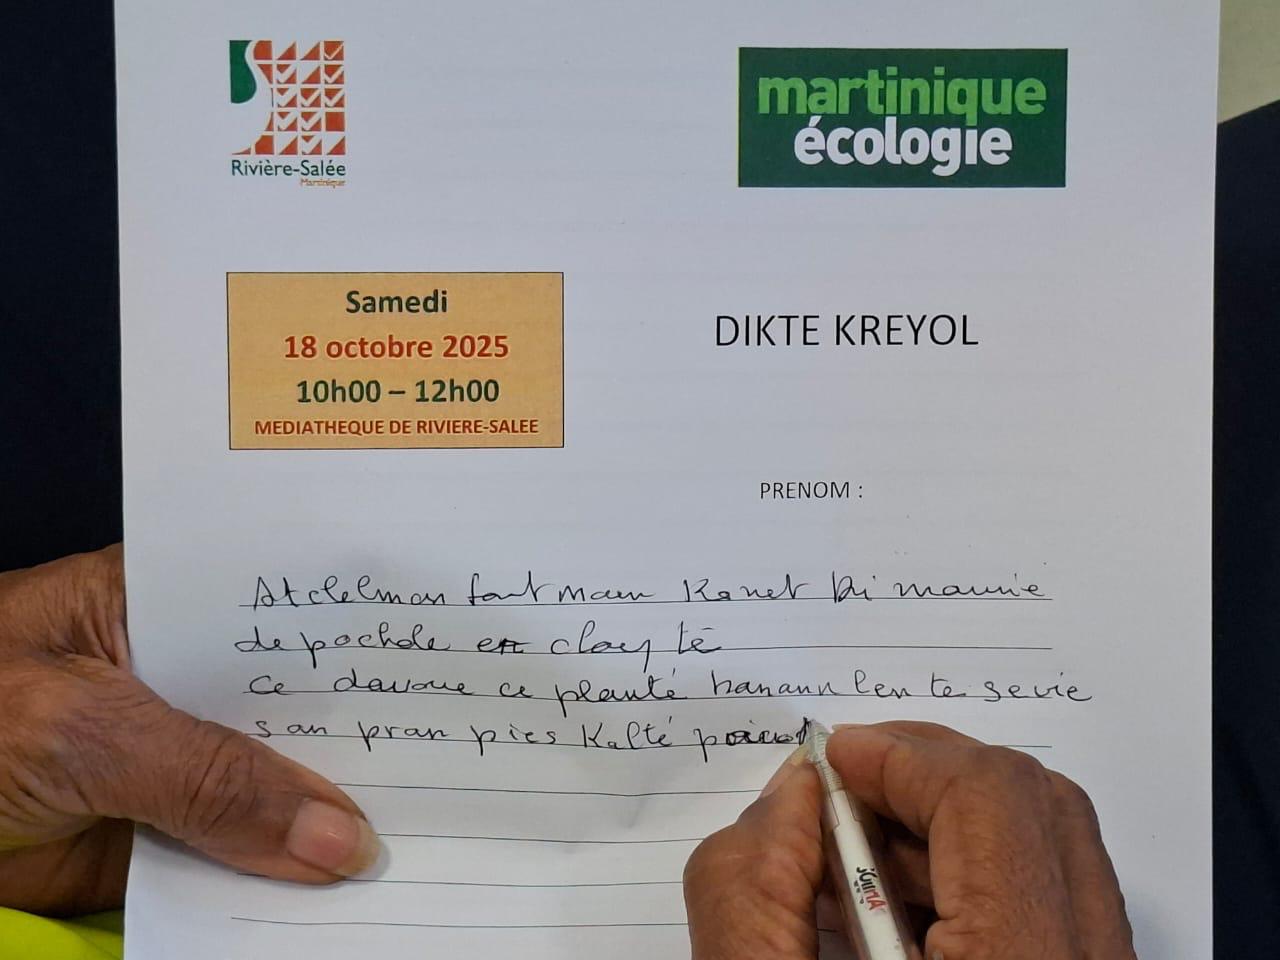 Rivière-Salée
Martinique
martinique
écologie
Samedi
18 octobre 2025
10h00 – 12h00
MEDIATHEQUE DE RIVIERE-SALEE
DIKTE KREYOL
PRENOM :
Kanet Di
de pochde en té
ce ce planté banann len te sevie
san pran pies Kalté
JOIIMA